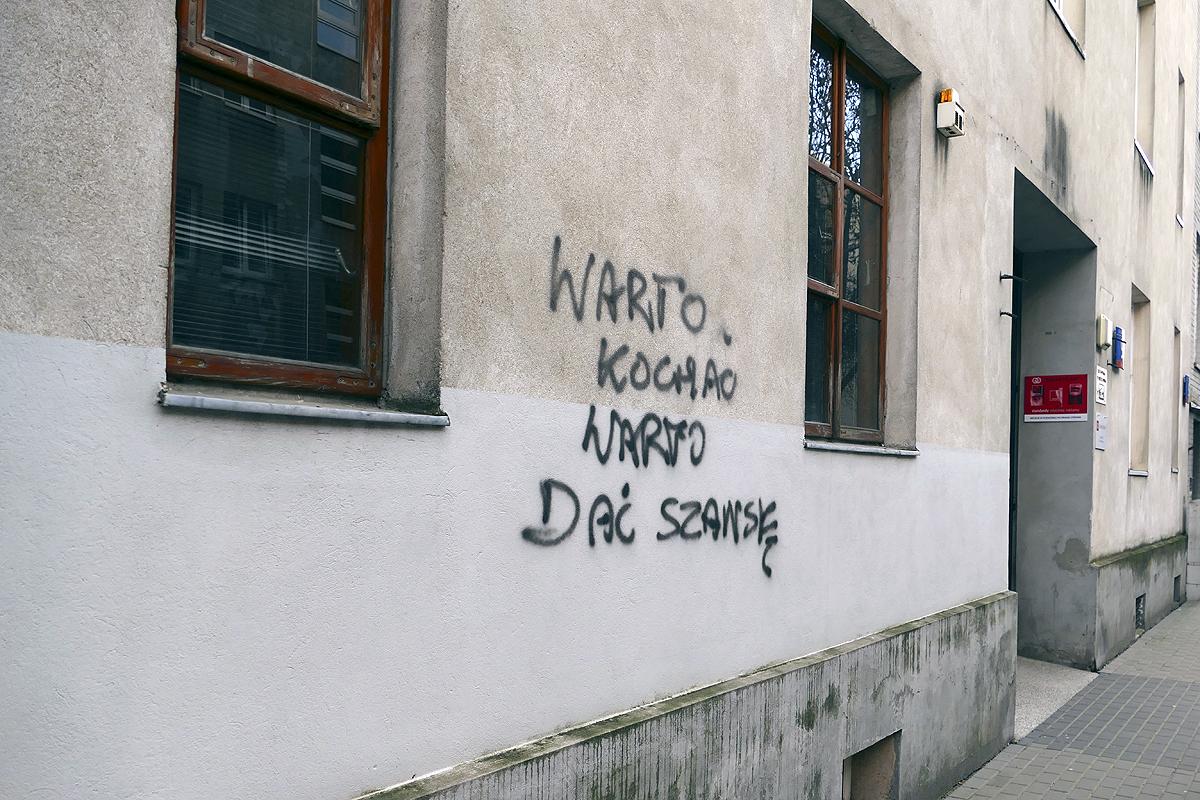 WARTO
KOCHAĆ
WARTO
DAĆ SZANSĘ